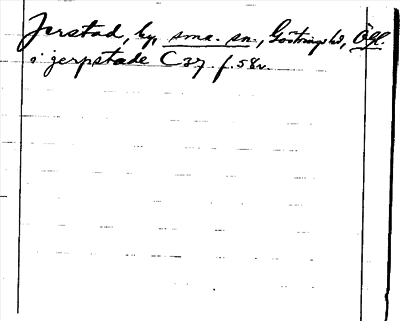 Jerstad, by, sma. sn., Göstrings hd, Ögl.
i jerpstade C 37 f. 58v.